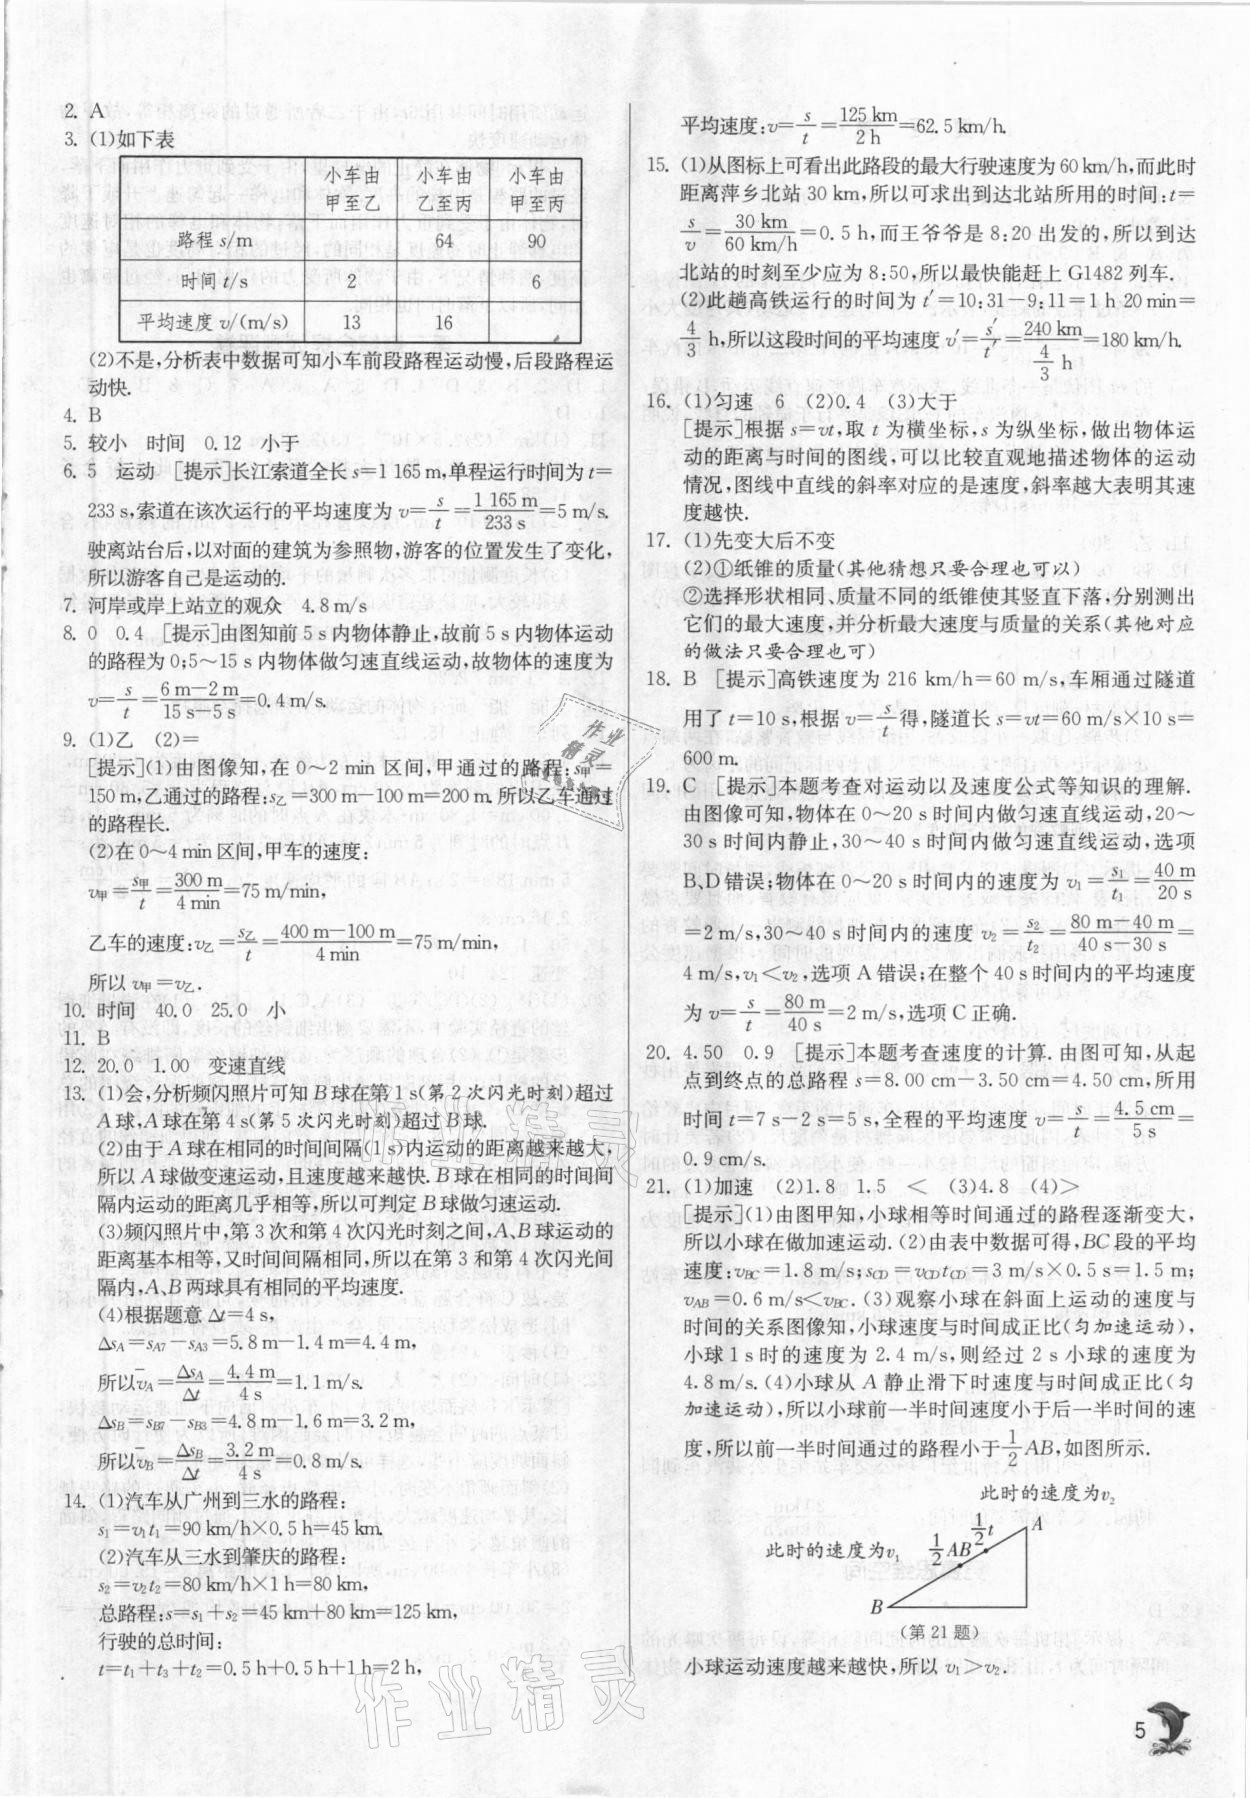 2. A
3. (1)如下表
小车由甲至乙 小车由乙至丙 小车由甲至丙
路程 s/m 64 90
时间 t/s 2 6
平均速度 v/(m/s) 13 16
(2)不是,分析表中数据可知小车前段路程运动慢,后段路程运
动快.
4. B
5. 较小 时间 0.12 小于
6. 5 运动 [提示]长江索道全长 s=1 165 m,单程运行时间为 t=
233 s,索道在该次运行的平均速度为 v=s/t=1 165 m/233 s=5 m/s.
驶离站台后,以对面的建筑为参照物,游客的位置发生了变化,
所以游客自己是运动的.
7. 河岸或岸上站立的观众 4.8 m/s
8. 0 0.4 [提示]由图知前 5 s 内物体静止,故前 5 s 内物体运动
的路程为 0;5~15 s 内物体做匀速直线运动,故物体的速度为
v=s/t=6 m-2 m/15 s-5 s=0.4 m/s.
9. (1)乙 (2)=
[提示](1)由图像知,在 0~2 min 区间,甲通过的路程:s甲=
150 m,乙通过的路程:s乙=300 m-100 m=200 m. 所以乙车通过
的路程长.
(2)在 0~4 min 区间,甲车的速度:
v甲=s甲/t=300 m/4 min=75 m/min,
乙车的速度:v乙=s乙/t=400 m-100 m/4 min=75 m/min,
所以 v甲=v乙.
10. 时间 40.0 25.0 小
11. B
12. 20.0 1.00 变速直线
13. (1)会,分析频闪照片可知 B 球在第 1 s(第 2 次闪光时刻)超过
A 球,A 球在第 4 s(第 5 次闪光时刻)超过 B 球.
(2)由于 A 球在相同的时间间隔(1 s)内运动的距离越来越大,
所以 A 球做变速运动,且速度越来越快. B 球在相同的时间间
隔内运动的距离几乎相等,所以可判定 B 球做匀速运动.
(3)频闪照片中,第 3 次和第 4 次闪光时刻之间,A、B 球运动的
距离基本相等,又时间间隔相同,所以在第 3 和第 4 次闪光间
隔内,A、B 两球具有相同的平均速度.
(4)根据题意 Δt=4 s,
ΔsA=sA7-sA3=5.8 m-1.4 m=4.4 m,
所以 v̄A=ΔsA/Δt=4.4 m/4 s=1.1 m/s.
ΔsB=sB7-sB3=4.8 m-1.6 m=3.2 m,
所以 v̄B=ΔsB/Δt=3.2 m/4 s=0.8 m/s.
14. (1)汽车从广州到三水的路程:
s1=v1t1=90 km/h×0.5 h=45 km.
(2)汽车从三水到肇庆的路程:
s2=v2t2=80 km/h×1 h=80 km,
总路程:s=s1+s2=45 km+80 km=125 km,
行驶的总时间:
t=t1+t3+t2=0.5 h+0.5 h+1 h=2 h,
平均速度:v=s/t=125 km/2 h=62.5 km/h.
15. (1)从图标上可看出此路段的最大行驶速度为 60 km/h,而此时
距离萍乡北站 30 km,所以可求出到达北站所用的时间:t=
s/v=30 km/60 km/h=0.5 h,而王爷爷是 8:20 出发的,所以到达
北站的时刻至少应为 8:50,所以最快能赶上 G1482 列车.
(2)此趟高铁运行的时间为 t′=10:31-9:11=1 h 20 min=
4/3 h,所以这段时间的平均速度 v′=s′/t′=240 km/4/3 h=180 km/h.
16. (1)匀速 6 (2)0.4 (3)大于
[提示]根据 s=vt,取 t 为横坐标,s 为纵坐标,做出物体运
动的距离与时间的图线,可以比较直观地描述物体的运动
情况,图线中直线的斜率对应的是速度,斜率越大表明其速
度越快.
17. (1)先变大后不变
(2)①纸锥的质量(其他猜想只要合理也可以)
②选择形状相同、质量不同的纸锥使其竖直下落,分别测出
它们的最大速度,并分析最大速度与质量的关系(其他对应
的做法只要合理也可)
18. B [提示]高铁速度为 216 km/h=60 m/s,车厢通过隧道
用了 t=10 s,根据 v=s/t得,隧道长 s=vt=60 m/s×10 s=
600 m.
19. C [提示]本题考查对运动以及速度公式等知识的理解.
由图像可知,物体在 0~20 s 时间内做匀速直线运动,20~
30 s 时间内静止,30~40 s 时间内做匀速直线运动,选项
B、D 错误;物体在 0~20 s 时间内的速度为 v1=s1/t1=40 m/20 s
=2 m/s,30~40 s 时间内的速度 v2=s2/t2=80 m-40 m/40 s-30 s=
4 m/s,v1<v2,选项 A 错误;在整个 40 s 时间内的平均速度
为 v=s/t=80 m/40 s=2 m/s,选项 C 正确.
20. 4.50 0.9 [提示]本题考查速度的计算. 由图可知,从起
点到终点的总路程 s=8.00 cm-3.50 cm=4.50 cm,所用
时间 t=7 s-2 s=5 s,全程的平均速度 v=s/t=4.5 cm/5 s=
0.9 cm/s.
21. (1)加速 (2)1.8 1.5 < (3)4.8 (4)>
[提示](1)由图甲知,小球相等时间通过的路程逐渐变大,
所以小球在做加速运动. (2)由表中数据可得,BC 段的平均
速度:vBC=1.8 m/s;sCD=vCDtCD=3 m/s×0.5 s=1.5 m;
vAB=0.6 m/s<vBC. (3)观察小球在斜面上运动的速度与
时间的关系图像知,小球速度与时间成正比(匀加速运动),
小球 1 s 时的速度为 2.4 m/s,则经过 2 s 小球的速度为
4.8 m/s. (4)小球从 A 静止滑下时速度与时间成正比(匀
加速运动),所以小球前一半时间速度小于后一半时间的速
度,所以前一半时间通过的路程小于1/2AB,如图所示.
此时的速度为v2
此时的速度为v1
1/2AB
1/2t
A
B
(第 21 题)
小球运动速度越来越快,所以 v1>v2.
5
作业精灵
作业精灵
作业精灵